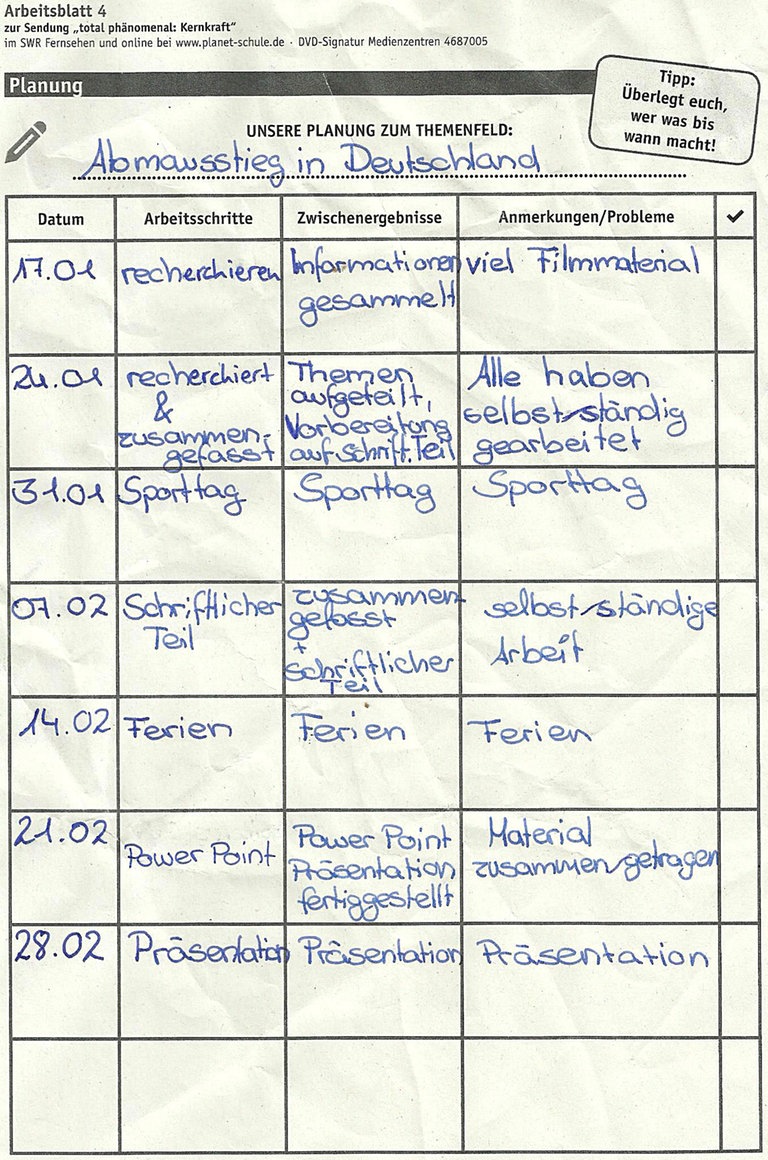 Arbeitsblatt 4
zur Sendung „total phänomenal: Kernkraft“
im SWR Fernsehen und online bei www.planet-schule.de · DVD-Signatur Medienzentren 4687005
Planung
Tipp:
Überlegt euch,
wer was bis
wann macht!
UNSERE PLANUNG ZUM THEMENFELD:
Atomausstieg in Deutschland
Datum
Arbeitsschritte
Zwischenergebnisse
Anmerkungen/Probleme
✓
17.01
recherchieren
Informationen
gesammelt
viel Filmmaterial
24.01
recherchiert
&
zusammen-
gefasst
Themen
aufgeteilt,
Vorbereitung
auf Schrift. Teil
Alle haben
selbstständig
gearbeitet
31.01
Sporttag
Sporttag
Sporttag
07.02
Schriftlicher
Teil
zusammen
gefasst
+
Schriftlicher
Teil
selbstständige
Arbeit
14.02
Ferien
Ferien
Ferien
21.02
Power Point
Power Point
Präsentation
fertiggestellt
Material
zusammengetragen
28.02
Präsentation
Präsentation
Präsentation